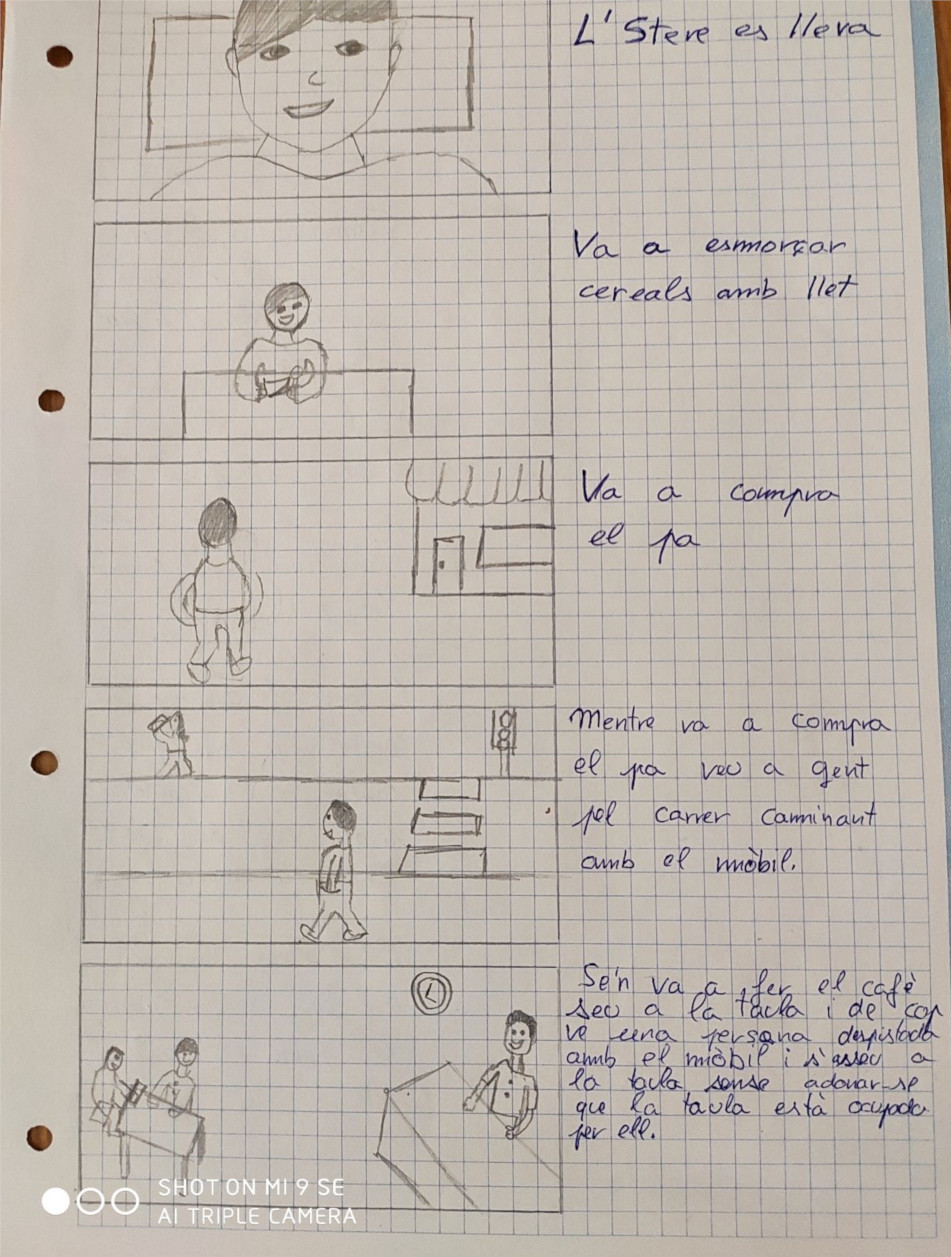 L'Steve es lleva
Va a esmorçar
cereals amb llet
Va a compra
el pa
Mentre va a compra
el pa veu a gent
pel carrer caminant
amb el mòbil.
Se'n va a fer el cafè
seu a la taula i de cop
ve una persona despistada
amb el mòbil i s'asseu a
la taula sense adonar-se
que la taula està ocupada
per ell.
SHOT ON MI 9 SE
AI TRIPLE CAMERA